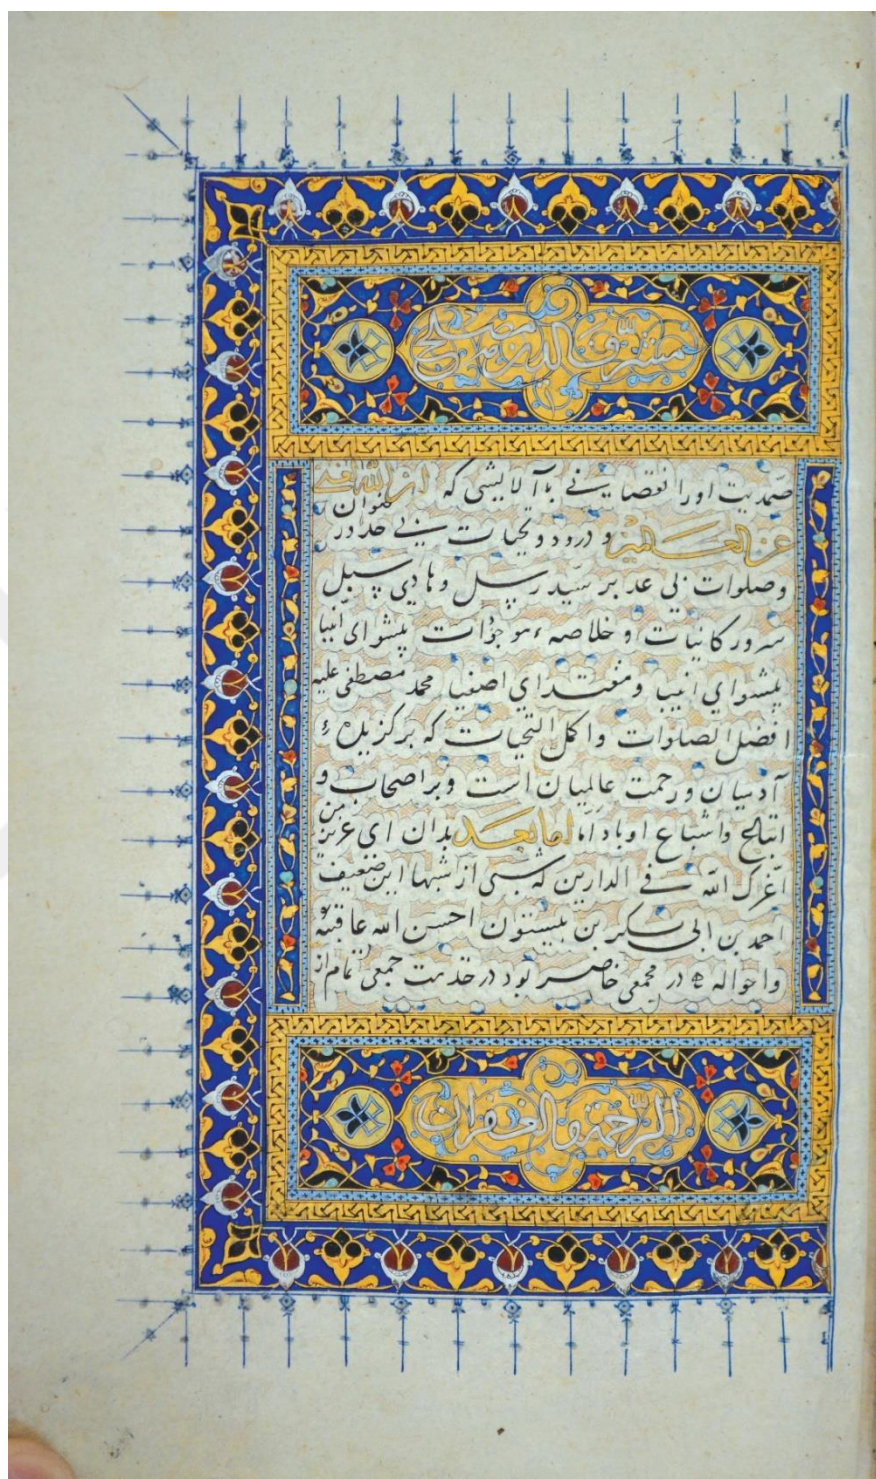 مشرف الدین مصلح
صمدیت او را نقصانی نی با آلایشی که ان الله غنی
عن العالمین و درود و تحیات بی حد در
وصلوات بی عد بر سید رسل و هادی سبل
سرور کاینات و خلاصهٔ موجودات پیشوای انبیا
پیشوای انبیا و مقتدای اصفیا محمد مصطفی علیه
افضل الصلوات و اکمل التحیات که برگزیدهٔ
آدمیان و رحمت عالمیان است و بر اصحاب و
اتباع و اشیاع او باد اما اما بعد بدان ای عزیز من
اعزک الله فی الدارین که شبی از شبها این ضعیف
احمد بن ابی بکر بن بیستون احسن الله عاقبته
واحواله در مجمعی حاضر بود در خدمت جمعی تمام از
الرحمة والغفران